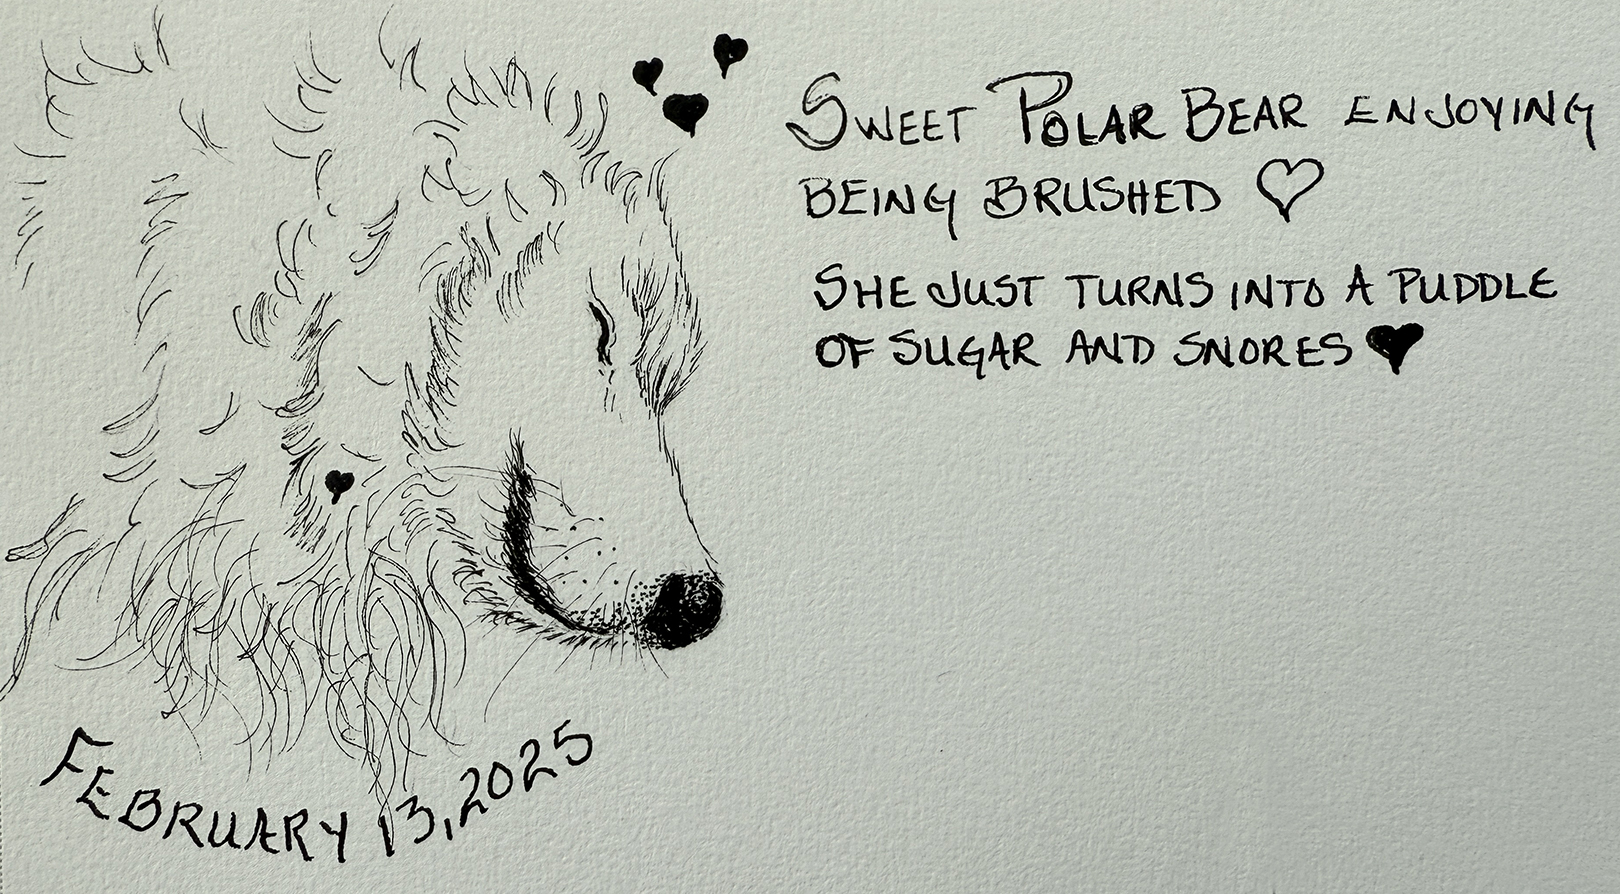 SWEET POLAR BEAR ENJOYING
BEING BRUSHED ♡
SHE JUST TURNS INTO A PUDDLE
OF SUGAR AND SNORES ♥
FEBRUARY 13, 2025